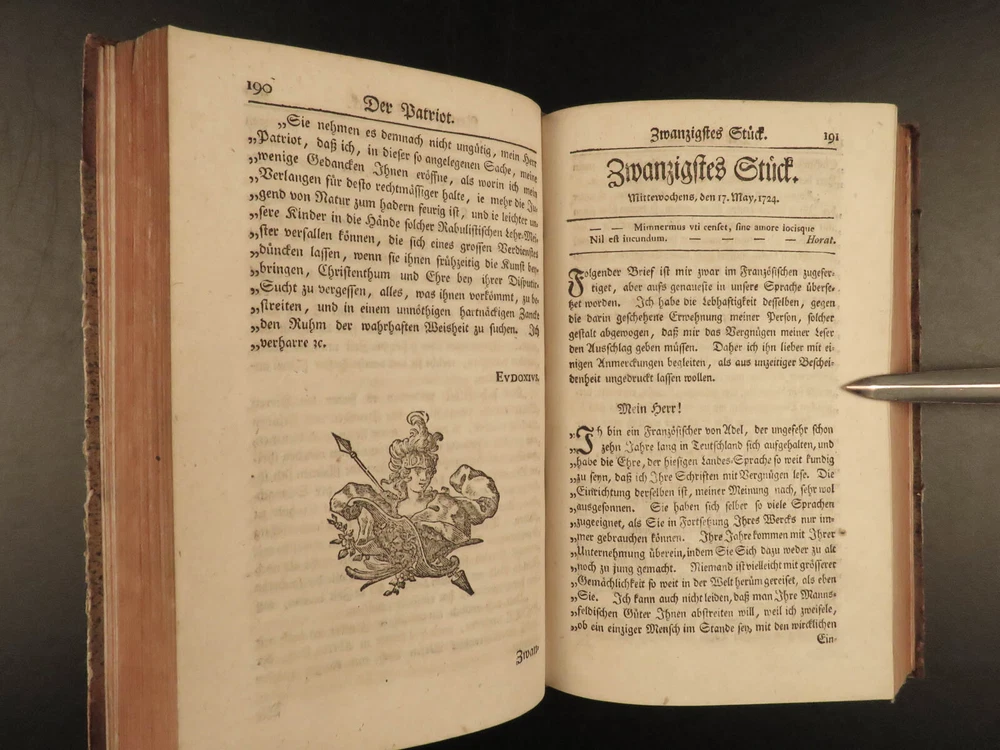 190
Der Patriot.
„Sie nehmen es demnach nicht ungütig, mein Herr
„Patriot, daß ich, in dieser so angelegenen Sache, meine
„wenige Gedancken Ihnen eröffne, als worin ich mein
„Verlangen für desto rechtmässiger halte, ie mehr die Ju-
„gend von Natur zum hadern feurig ist, und ie leichter un-
„sere Kinder in die Hände solcher Rabulistischen Lehr-Mei-
„ster verfallen können, die sich eines grossen Verdienstes
„düncken lassen, wenn sie ihnen frühzeitig die Kunst bey-
„bringen, Christenthum und Ehre bey ihrer Disputir-
„Sucht zu vergessen, alles, was ihnen vorkömmt, zu be-
„streiten, und in einem unnöthigen hartnäckigen Zancke
„den Ruhm der wahrhaften Weisheit zu suchen. Ich
„verharre ꝛc.
EVDOXIVS.
Zwan-
Zwanzigstes Stück. 191
Zwanzigstes Stück.
Mittewochens, den 17. May, 1724.
— — Mimnermus vti censet, sine amore iocisque
Nil est iucundum. — — — — Horat.
Folgender Brief ist mir zwar im Französischen zugefer-
tiget, aber aufs genaueste in unsere Sprache überse-
tzet worden. Ich habe die Lebhaftigkeit desselben, gegen
die darin geschehene Erwehnung meiner Person, solcher
gestalt abgewogen, daß mir das Vergnügen meiner Leser
den Ausschlag geben müssen. Daher ich ihn lieber mit ei-
nigen Anmerckungen begleiten, als aus unzeitiger Beschei-
denheit ungedruckt lassen wollen.
Mein Herr!
„Ich bin ein Französischer von Adel, der ungefehr schon
„zehn Jahre lang in Teutschland sich aufgehalten, und
„habe die Ehre, der hiesigen Landes-Sprache so weit kundig
„zu seyn, daß ich Ihre Schriften mit Vergnügen lese. Die
„Einrichtung derselben ist, meiner Meinung nach, sehr wol
„ausgesonnen. Sie haben sich selber so viele Sprachen
„zugeeignet, als Sie in Fortsetzung Ihres Wercks nur im-
„mer gebrauchen können. Ihre Jahre kommen mit Ihrer
„Unternehmung überein, indem Sie Sich dazu weder zu alt
„noch zu jung gemacht. Niemand ist vielleicht mit grösserer
„Gemächlichkeit so weit in der Welt herüm gereiset, als eben
„Sie. Ich kann auch nicht leiden, daß man Ihre Manns-
„feldischen Güter Ihnen abstreiten will, weil ich zweifele,
„ob ein einziger Mensch im Stande sey, mit den wircklichen
Ein-